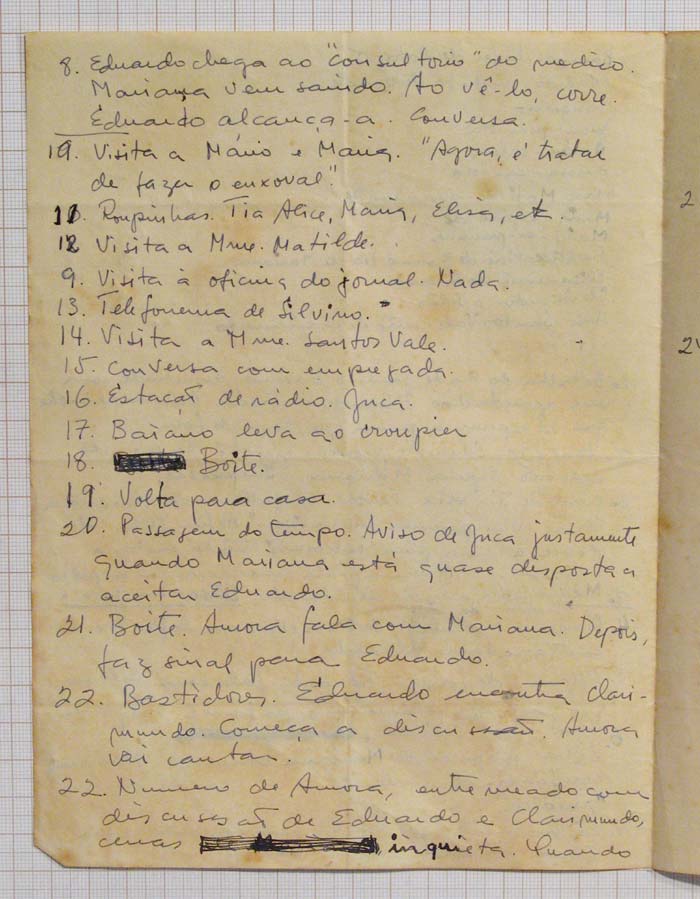 8. Eduardo chega ao "consultorio" do medico.
Mariana vem saindo. Ao vê-lo, corre.
Eduardo alcança-a. Conversa.
19. Visita a Mário e Maria. "Agora, é tratar
de fazer o enxoval".
11. Roupinhas. Tia Alice, Maria, Elisa, etc.
12 Visita a Mme. Matilde.
9. Visita à oficina do jornal. Nada.
13. Telefonema de Silvino.
14. Visita a Mme. Santos Vale.
15. Conversa com empregada.
16. Estacão de rádio. Juca.
17. Baiano leva ao croupier
18. Boite.
19. Volta para casa.
20. Passagem do tempo. Aviso de Juca justamente
quando Mariana está quase disposta a
aceitar Eduardo.
21. Boite. Amora fala com Mariana. Depois,
faz sinal para Eduardo.
22. Bastidores. Eduardo encontra Clari-
mundo. Começa a discussão. Amora
vai cantar.
22. Numero de Amora, entremeado com
discussão de Eduardo e Clarimundo,
cenas inquieta. Quando
2
2